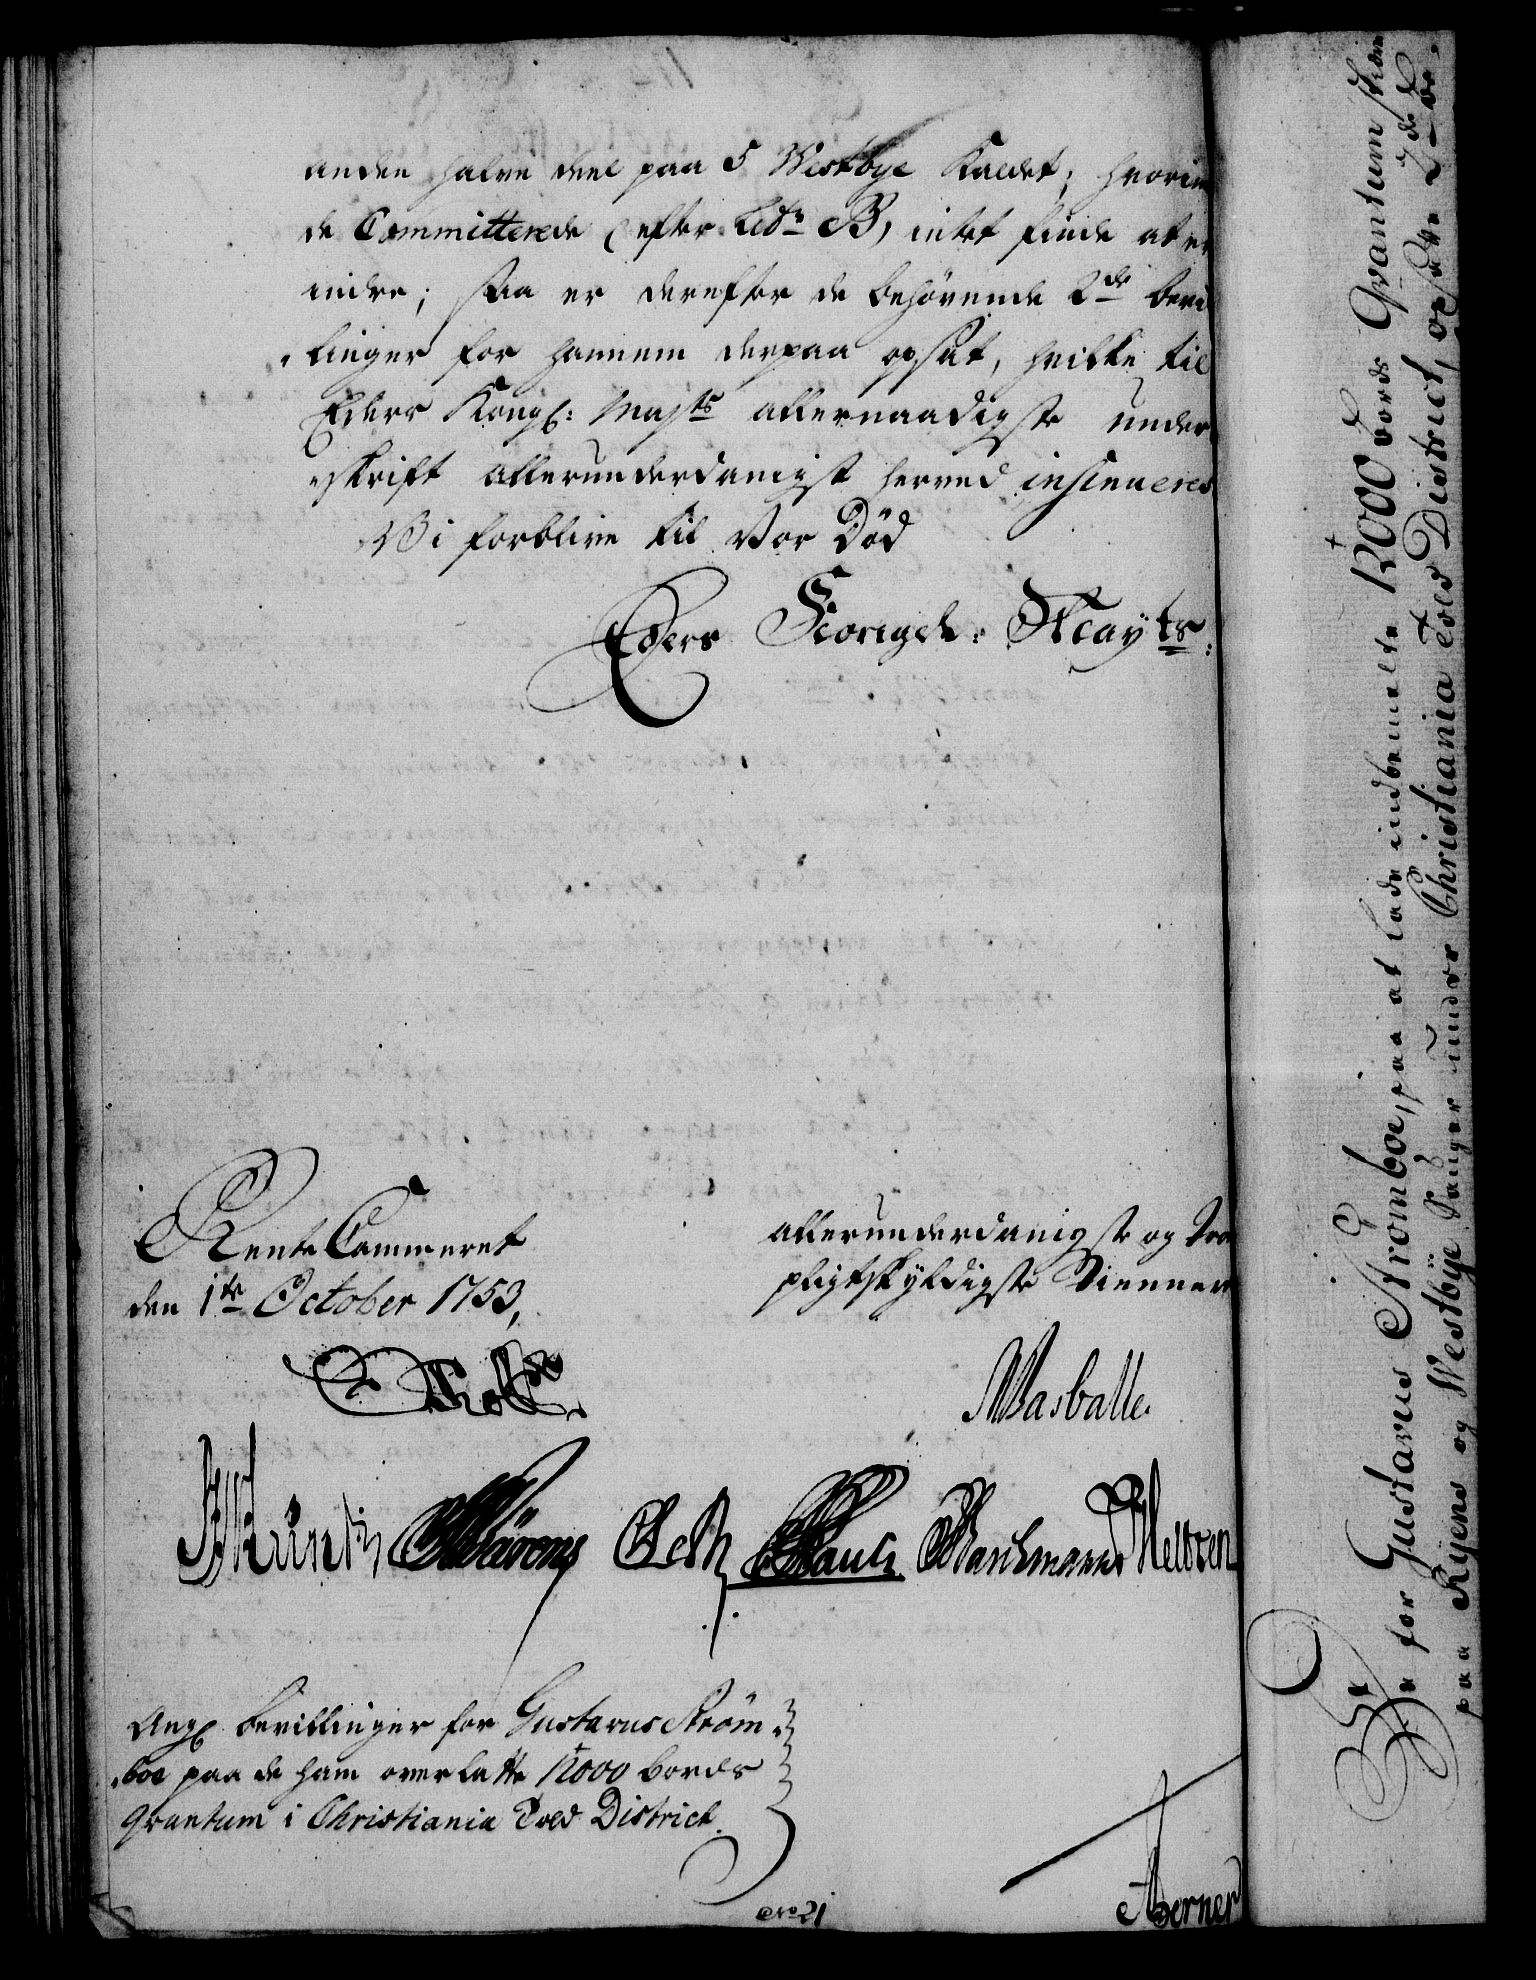 anden halve deel paa 5 Westbye Kaldet; hvorim
de Committerede (efter Litr B) intet finde at er
indre; saa er derefter de behørende 2de bevil
linger for hannem derpaa opsat, hvilke til
Eders Kongl: Maj:ts allernaadigste under
skrift allerunderdanigst herved insinueres
Vi forblive til Vor Død
Eders Kongel: Mayts:
Rente Cammeret
den 1te October 1753,
allerunderdanigste og Tro
pligtskyldigste Tiennere
Holst
Wasballe.
Pauli
Barchmann
Angl bevillinger for Gustavus Strøm
boe paa de ham overladte 12000 bords
Qvantum i Christiania Told District.
No 21
Berner
Be for Gustavus Strømboe, paa at lade indbemelte 12000 bords Qvantum skiære
paa Ryens og Westbÿe Sauger under Christiania Told District, opsadte 2de